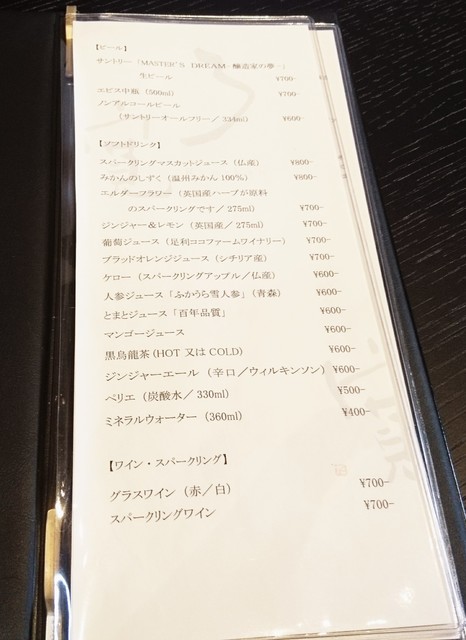 【ビール】
サントリー「MASTER'S DREAM－醸造家の夢－」
生ビール ¥700-
エビス中瓶（500ml） ¥700-
ノンアルコールビール
（サントリーオールフリー／334ml） ¥600-
【ソフトドリンク】
スパークリングマスカットジュース（仏産） ¥800-
みかんのしずく（温州みかん 100%） ¥800-
エルダーフラワー（英国産ハーブが原料
のスパークリングです／275ml） ¥700-
ジンジャー＆レモン（英国産／275ml） ¥700-
葡萄ジュース（足利ココファームワイナリー） ¥700-
ブラッドオレンジジュース（シチリア産） ¥700-
ケロー（スパークリングアップル／仏産） ¥600-
人参ジュース「ふかうら雪人参」（青森） ¥600-
とまとジュース「百年品質」 ¥600-
マンゴージュース ¥600-
黒烏龍茶（HOT 又は COLD） ¥600-
ジンジャーエール（辛口／ウィルキンソン） ¥600-
ペリエ（炭酸水／330ml） ¥500-
ミネラルウォーター（360ml） ¥400-
【ワイン・スパークリング】
グラスワイン（赤／白） ¥700-
スパークリングワイン ¥700-